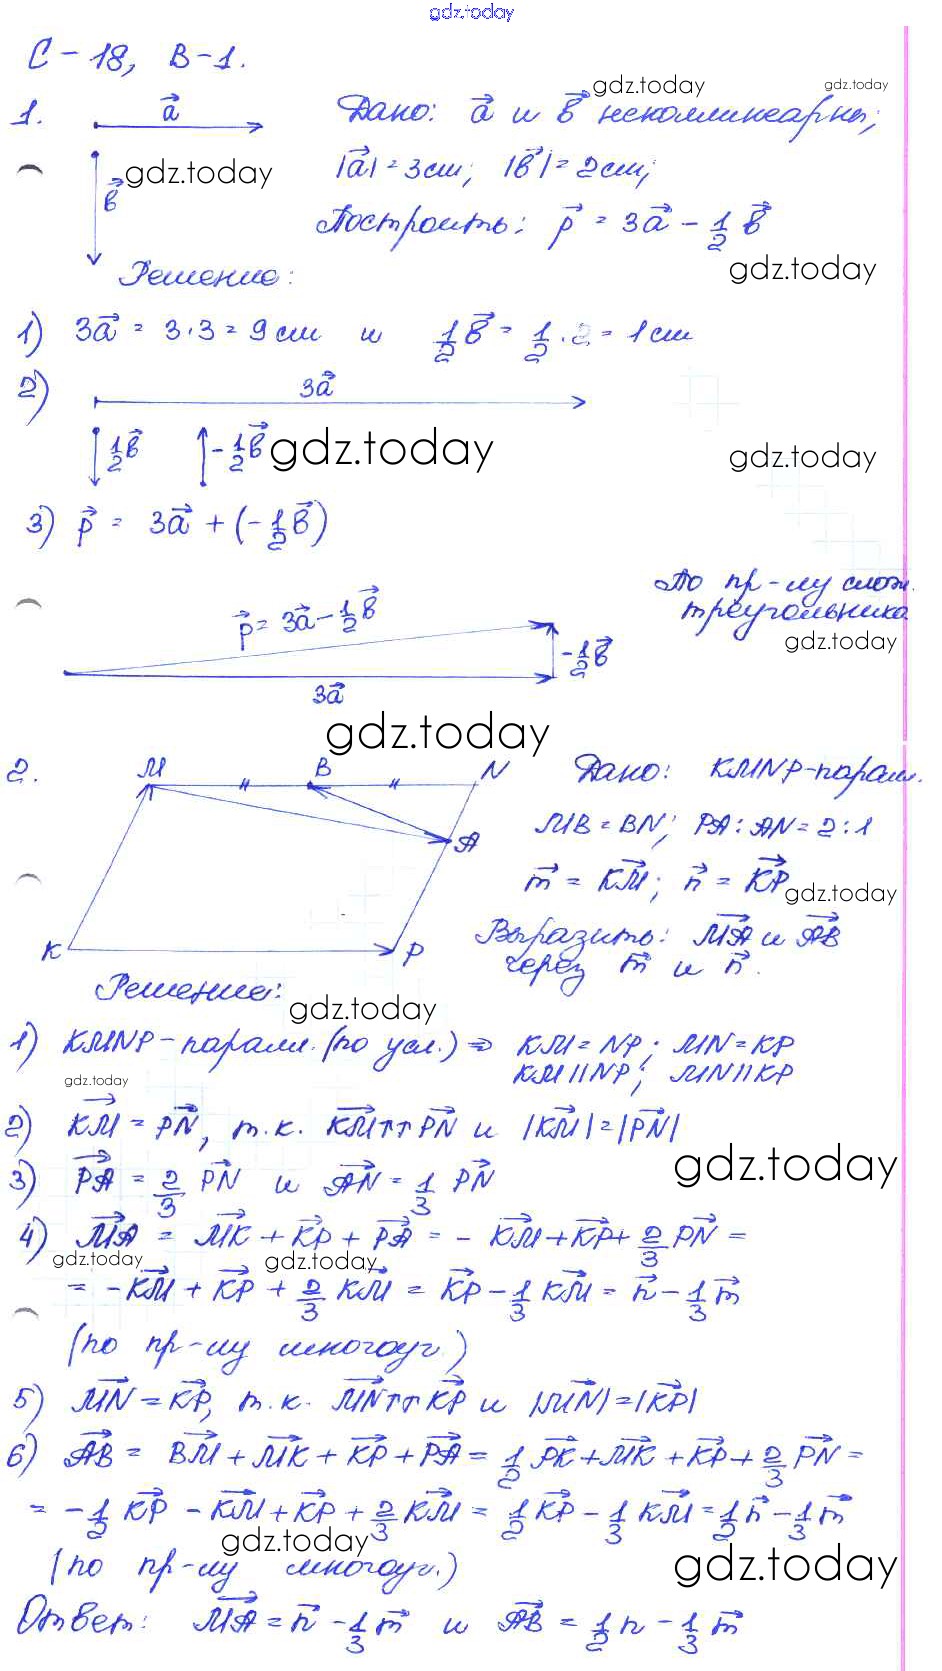 gdz.today
С-18, В-1.
gdz.today gdz.today
1. a⃗ Дано: a⃗ и b⃗ неколлинеарны;
gdz.today b⃗ |a⃗| = 3см; |b⃗| = 2см;
Построить: p⃗ = 3a⃗ - 1/2 b⃗
gdz.today
Решение:
1) 3a⃗ = 3·3 = 9см и 1/2 b⃗ = 1/2 · 2 = 1см
2) 3a⃗
1/2 b⃗ -1/2 b⃗ gdz.today gdz.today
3) p⃗ = 3a⃗ + (-1/2 b⃗)
По пр-лу слож.
треугольника
gdz.today
p⃗ = 3a⃗ - 1/2 b⃗
-1/2 b⃗
3a⃗
gdz.today
2. M B N Дано: KMNP-парал.
A MB = BN; PA : AN = 2 : 1
m⃗ = KM⃗; n⃗ = KP⃗
gdz.today
K P Выразить: MA⃗ и AB⃗
через m⃗ и n⃗.
Решение:
gdz.today
1) KMNP-паралл. (по усл.) ⇒ KM = NP; MN = KP
KM || NP; MN || KP
gdz.today
2) KM⃗ = PN⃗, т.к. KM⃗ ↑↑ PN⃗ и |KM⃗| = |PN⃗|
gdz.today
3) PA⃗ = 2/3 PN⃗ и AN⃗ = 1/3 PN⃗
4) MA⃗ = MK⃗ + KP⃗ + PA⃗ = - KM⃗ + KP⃗ + 2/3 PN⃗ =
gdz.today gdz.today
= -KM⃗ + KP⃗ + 2/3 KM⃗ = KP⃗ - 1/3 KM⃗ = n⃗ - 1/3 m⃗
(по пр-лу многоуг.)
5) MN⃗ = KP⃗, т.к. MN⃗ ↑↑ KP⃗ и |MN⃗| = |KP⃗|
6) AB⃗ = BM⃗ + MK⃗ + KP⃗ + PA⃗ = 1/2 PK⃗ + MK⃗ + KP⃗ + 2/3 PN⃗ =
= -1/2 KP⃗ - KM⃗ + KP⃗ + 2/3 KM⃗ = 1/2 KP⃗ - 1/3 KM⃗ = 1/2 n⃗ - 1/3 m⃗
gdz.today gdz.today
(по пр-лу многоуг.)
Ответ: MA⃗ = n⃗ - 1/3 m⃗ и AB⃗ = 1/2 n - 1/3 m⃗